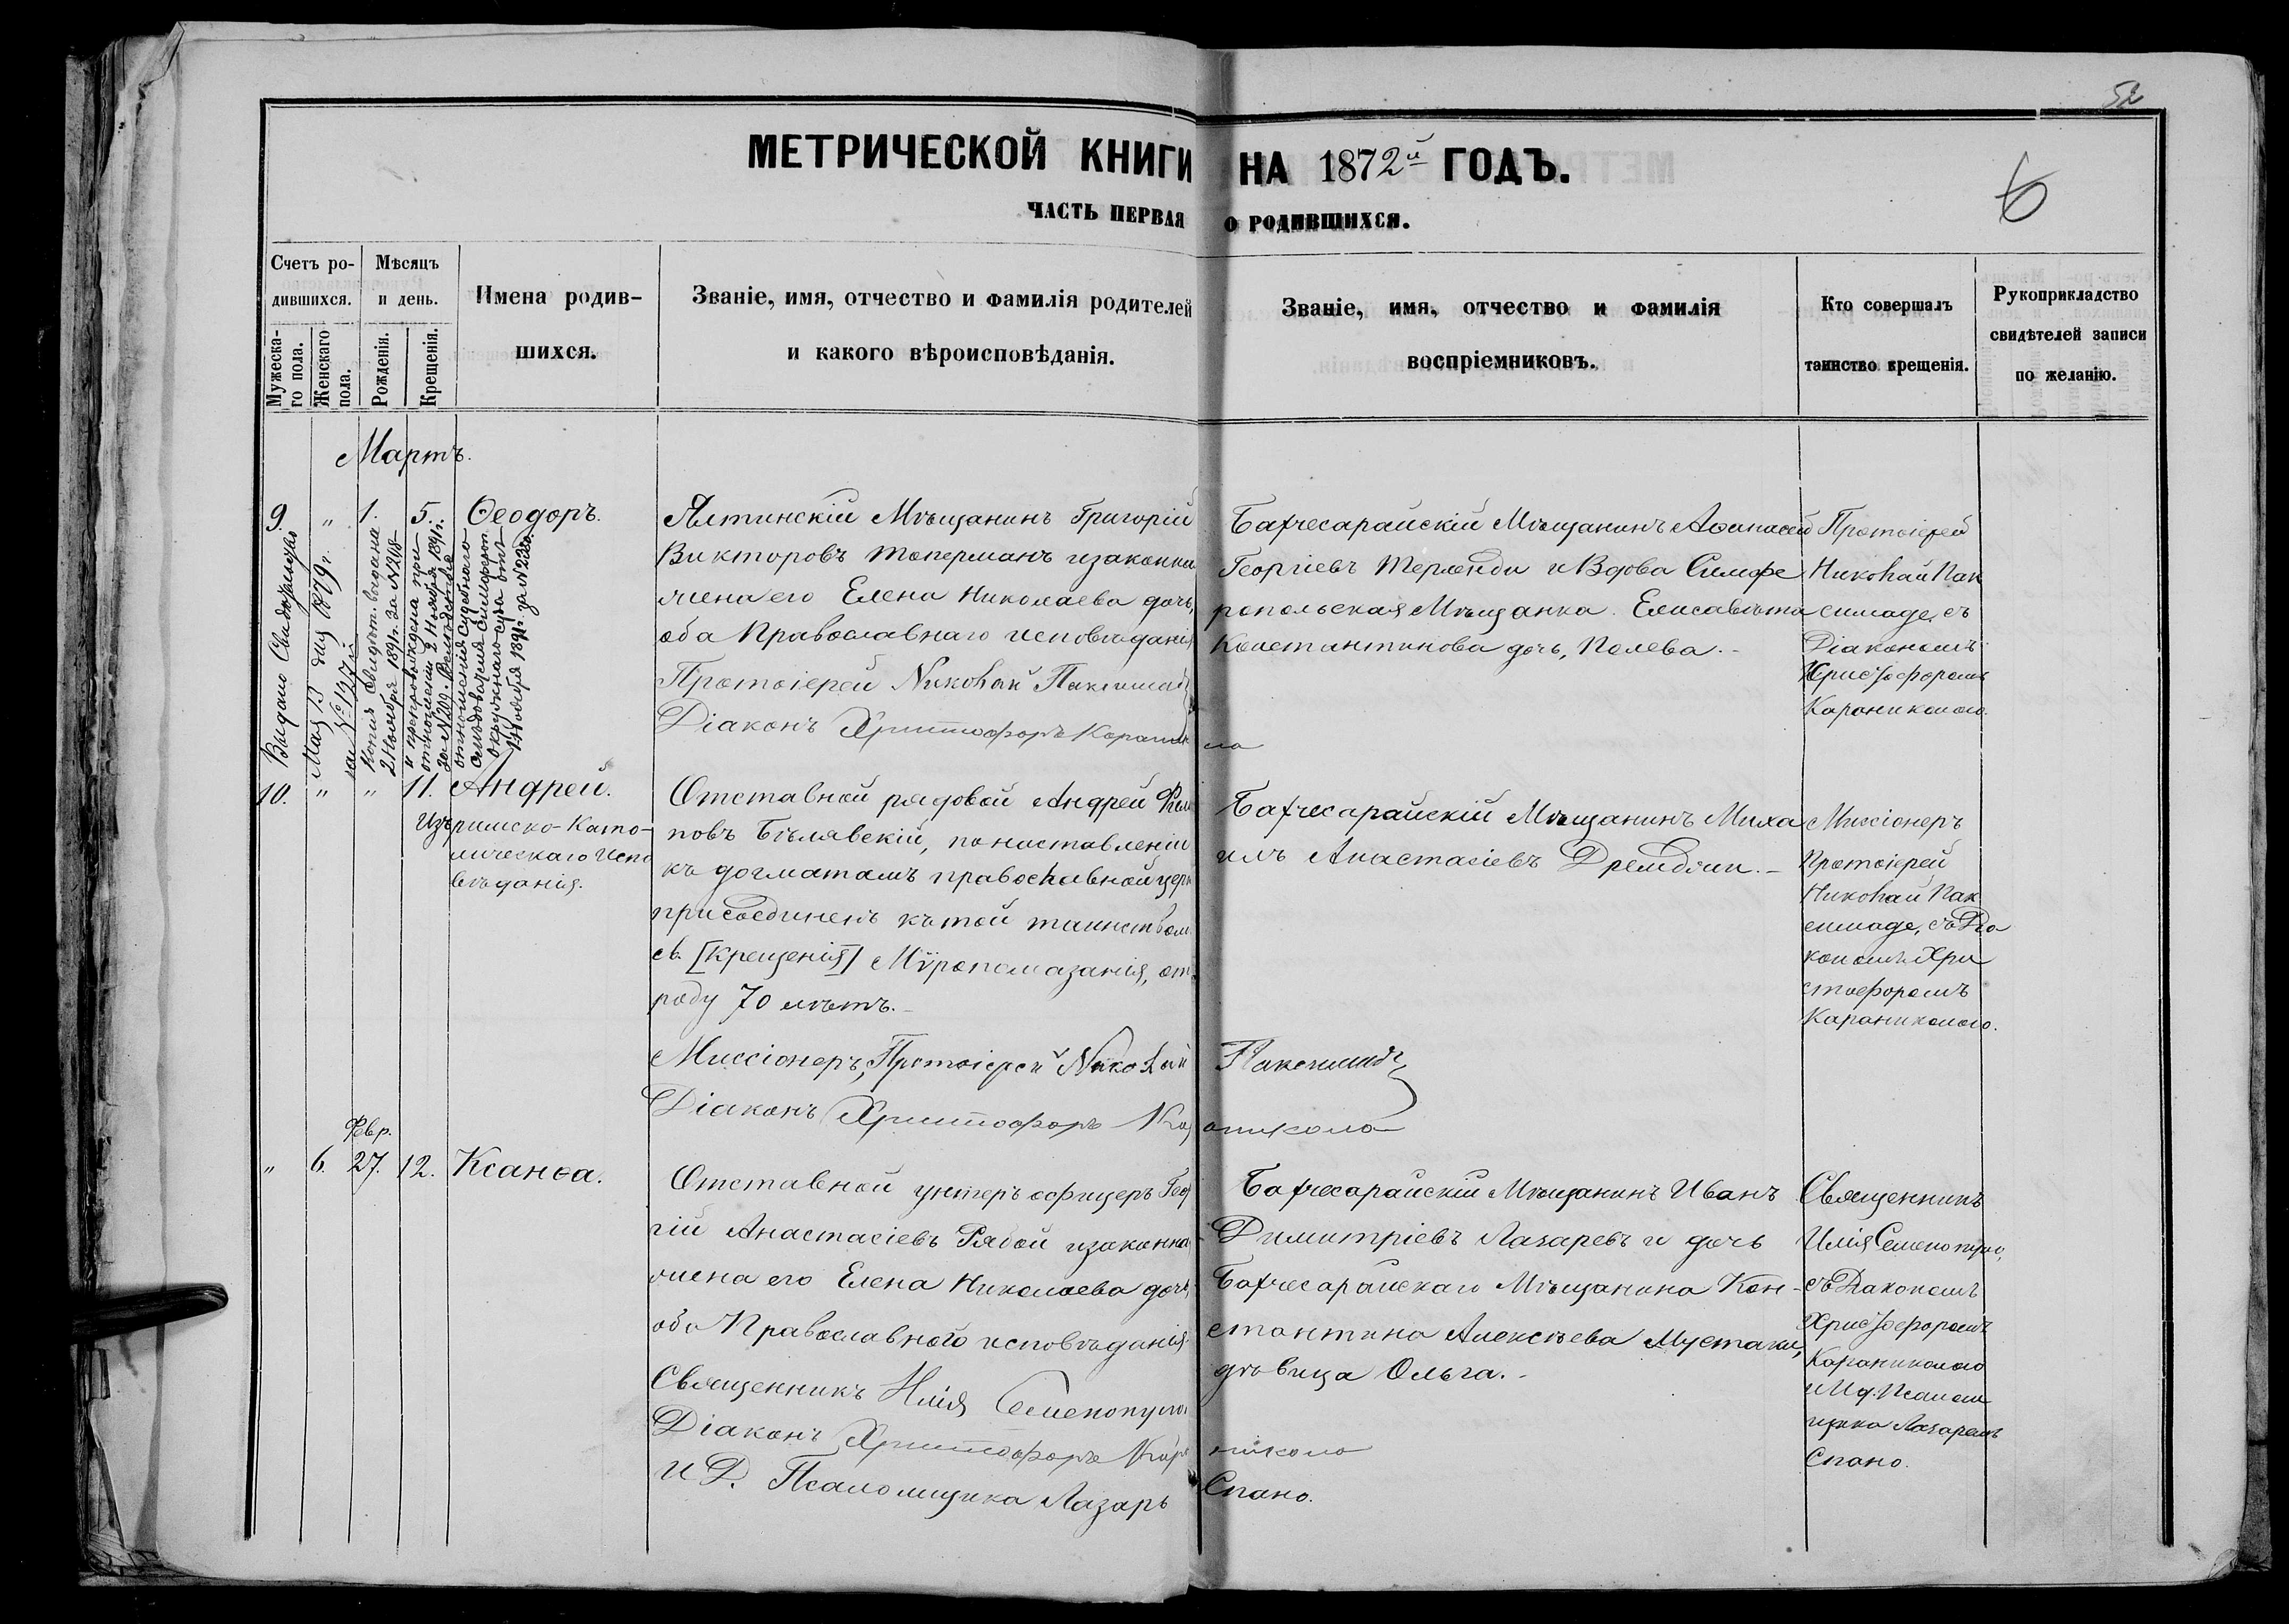 52
МЕТРИЧЕСКОЙ КНИГИ НА 1872й ГОДЪ.
6
ЧАСТЬ ПЕРВАЯ О РОДИВШИХСЯ.
Счетъ ро-
дившихся.
Мужеска-
го пола.
Женскаго
пола.
Мѣсяцъ
и день.
Рожденія.
Крещенія.
Имена родив-
шихся.
Званіе, имя, отчество и фамилія родителей
и какого вѣроисповѣданія.
Званіе, имя, отчество и фамилія
воспріемниковъ.
Кто совершалъ
таинство крещенія.
Рукоприкладство
свидѣтелей записи
по желанію.
Мартъ.
9. " 1. 5. Ѳеодоръ.
Выдано Свидѣтельство
Мая 13 дня 1879 г.
за № 127й
Копія свидѣт. выдана
2 Ноября 1891 г. за № 208
и препровождена при
отношеніи 2 Ноября 1891 г.
за № 209. Вслѣдствіе
отношенія Судебнаго
Слѣдователя Симфероп.
окружнаго суда отъ
Ноября 1891 г. за №
Ялтинскій Мѣщанинъ Григорій
Викторовъ Топерманъ и законна
жена его Елена Николаева дочь,
оба Православнаго исповѣданія
Протоіерей Николай Паксимаде
Діаконъ Христофоръ Караникола
Бахчесарайскій Мѣщанинъ Аѳанасій
Георгіевъ Терленди и Вдова Симфе
ропольская Мѣщанка Елисавѣта
Константинова дочь, Полева.-
Протоіерей
Николай Пак
симаде, съ
Діакономъ
Христофоромъ
Караниколою.
10. " " 11. Андрей.
Изъ римско-Като-
лическаго Испо
вѣданія.
Отставной рядовой Андрей Фили
повъ Бѣлявскій, по наставленіи
къ догматамъ православной церк
присоединенъ къ той таинствомъ
св. [Крещенія] Мѵропомазанія, отъ
роду 70 лѣтъ.-
Миссіонеръ, Протоіерей Николай Паксимаде
Діаконъ Христофоръ Караникола
Бахчесарайскій Мѣщанинъ Миха
илъ Анастасіевъ Дремблин.-
Миссіонеръ
Протоіерей
Николай Пак
симаде, съ Діа
кономъ Хри
стофоромъ
Караниколою.
Февр.
" 6. 27. 12. Ксанѳа.
Отставной унтеръ офицеръ Геор
гій Анастасіевъ Рябой и законна
жена его Елена Николаева дочь,
оба Православного исповѣданія.
Священникъ Илія Семенопуло
Діаконъ Христофоръ Караникола
И Д. Псаломщика Лазарь Спано.
Бахчесарайскій Мѣщанинъ Иванъ
Димитріевъ Лазаревъ и дочь
Бахчесарайскаго Мѣщанина Кон-
стантина Алексѣева Мустаки,
дѣвица Ольга.-
Священникъ
Илія Семенопуло,
съ Діакономъ
Христофоромъ
Караниколою
и И д. Псалом
щика Лазаремъ
Спано.